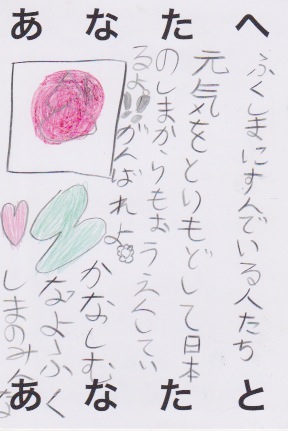 あなたへ
ふくしまにすんでいる人たち
元気をとりもどして日本
のしまからもおうえんしてい
るよ!!がんばれよ
かなしむ
なよふく
しまのみんな
あなたと